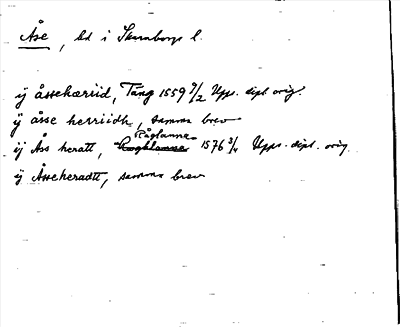 Åse, hd i Skaraborgs l.
ij åssekæriid, Tång 1559 9/2 Upps. dipl orig.
ij åsse herriidh, samma brev
Råglanna
ij Åss heratt, 1576 3/4 Upps. dipl. orig.
ij Åsseheradtt, samma brev